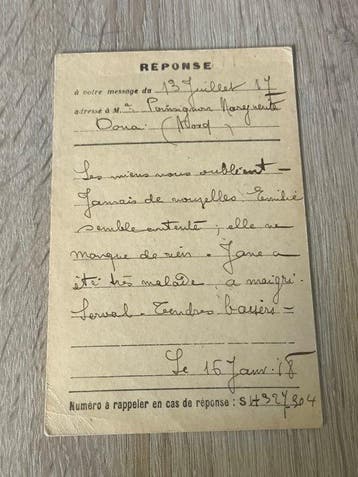 RÉPONSE
à votre message du 13 Juillet 17
adressé à M Marguerite
Doua (Nord)
Les miens nous oublient -
Jamais de nouvelles. Emilie
semble ententé ; elle ne
manque de rien. Jane a
été très malade, a maigri.
Serval - Tendres baisers -
Le 16 Janv. 18
Numéro à rappeler en cas de réponse : S 14327304